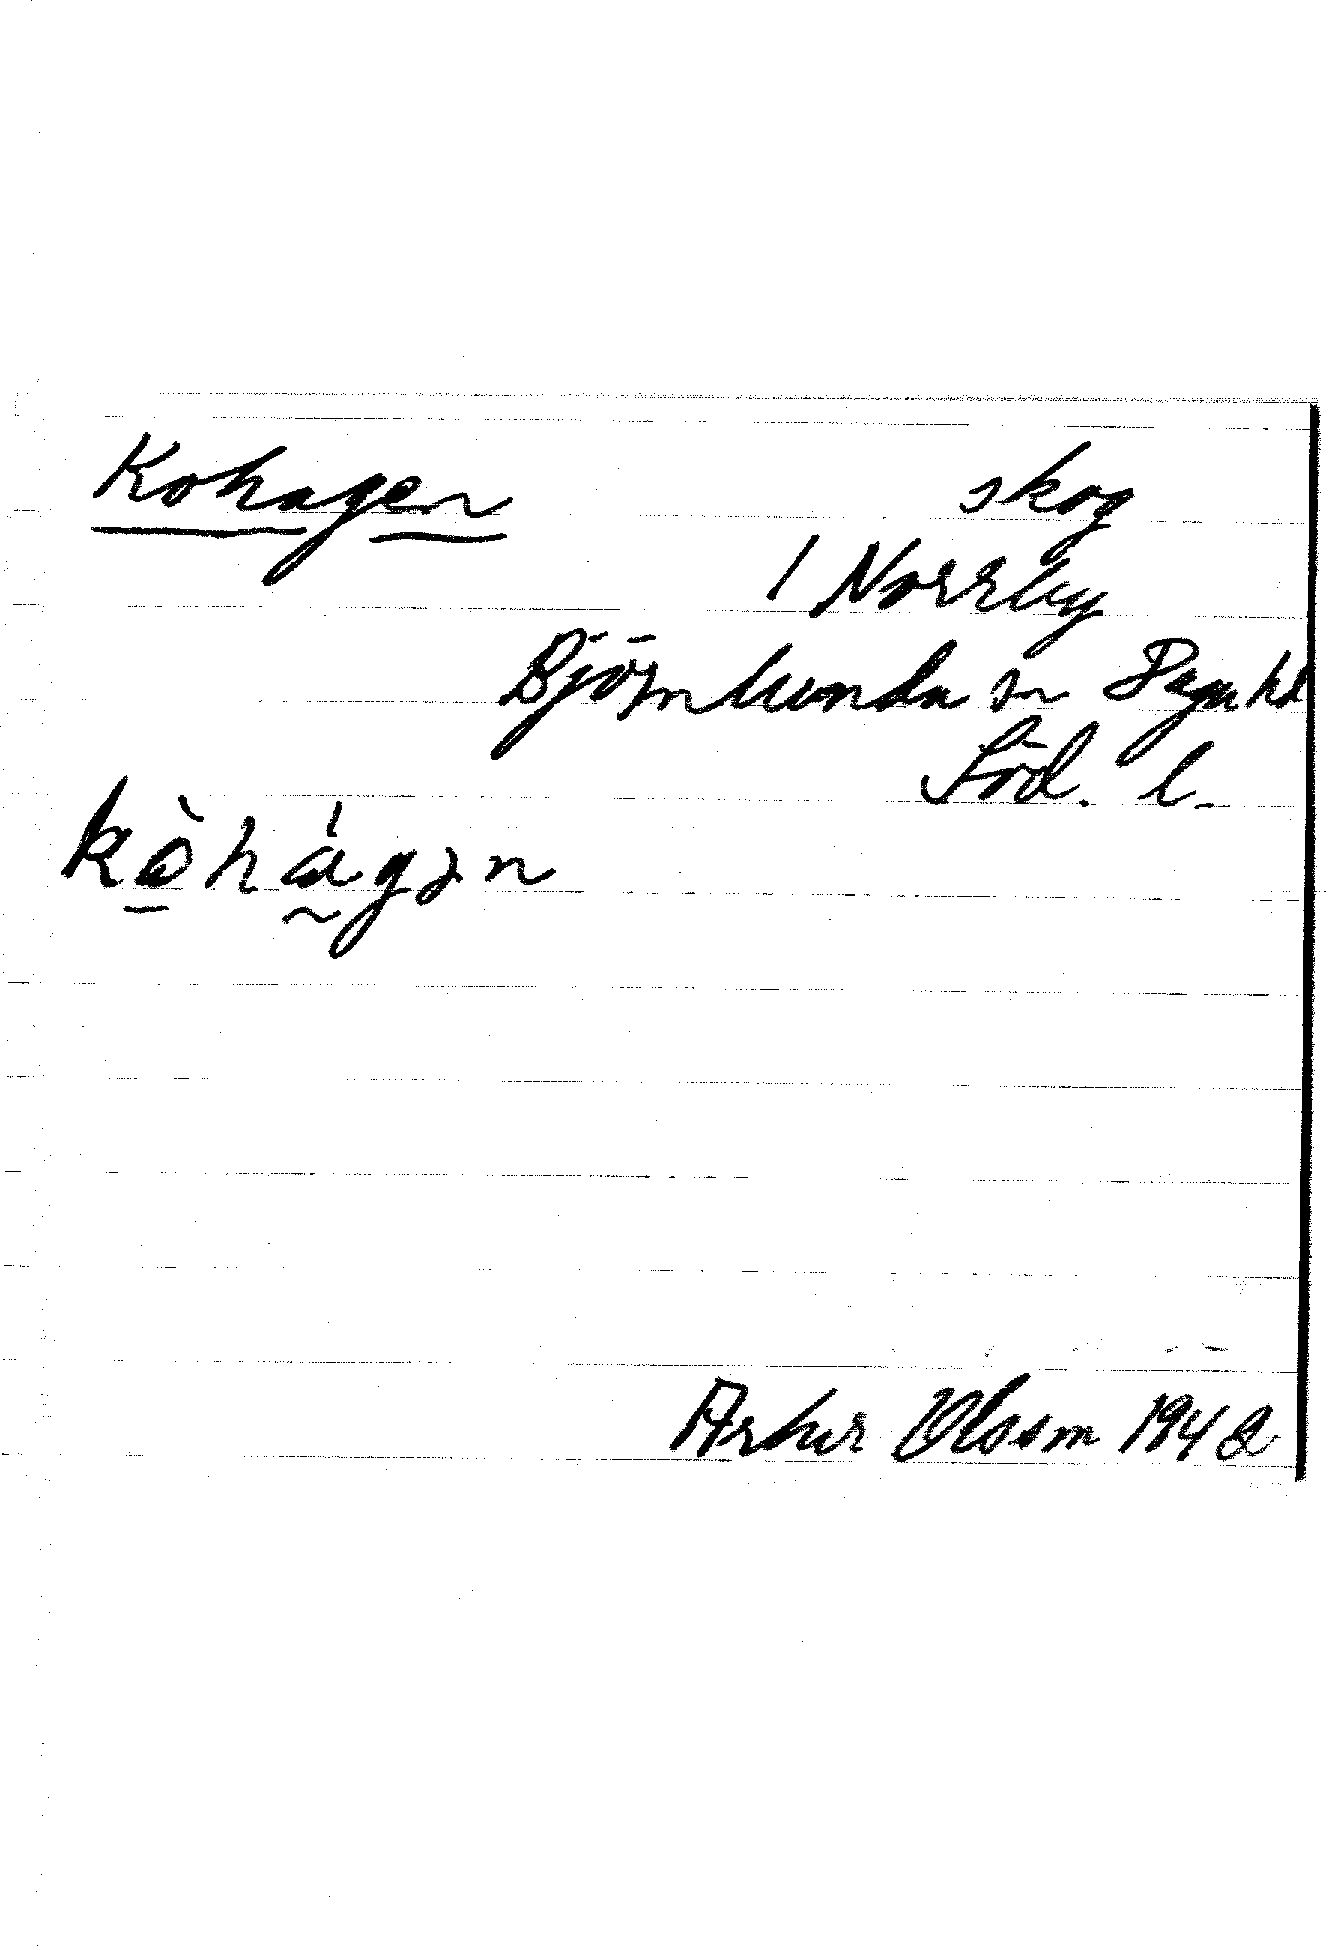 Kohagen skog
1 Norrby
Björnlunda sn Daga hd
Söd. l.
kòhágən
Artur Olsson 1942